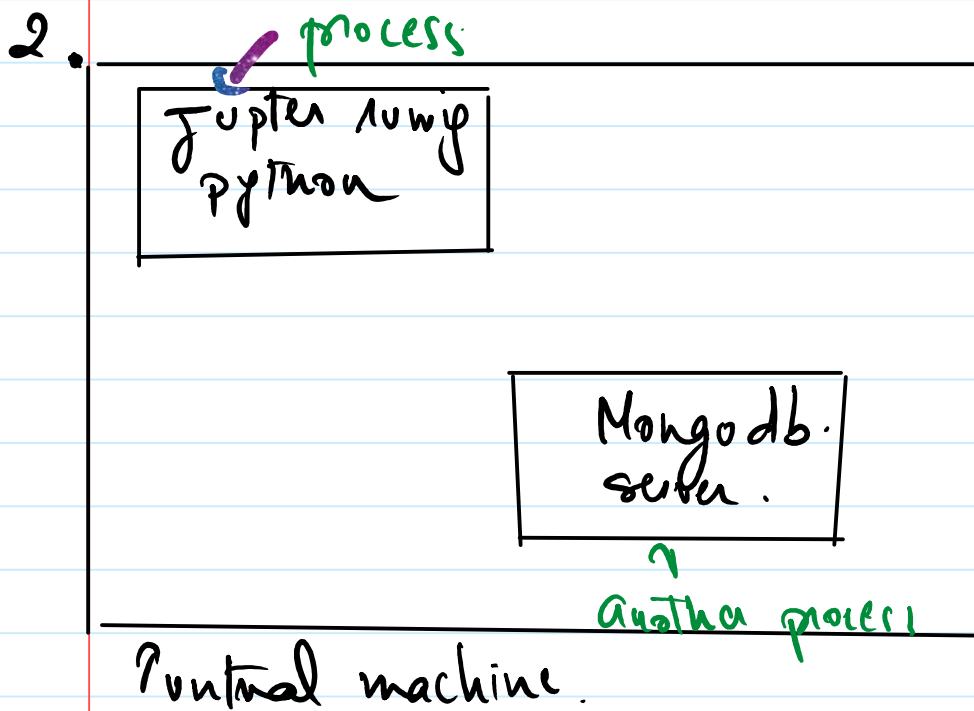 2.
process
Jupter runnig
python
Mongodb.
server.
another process
virtual machine.